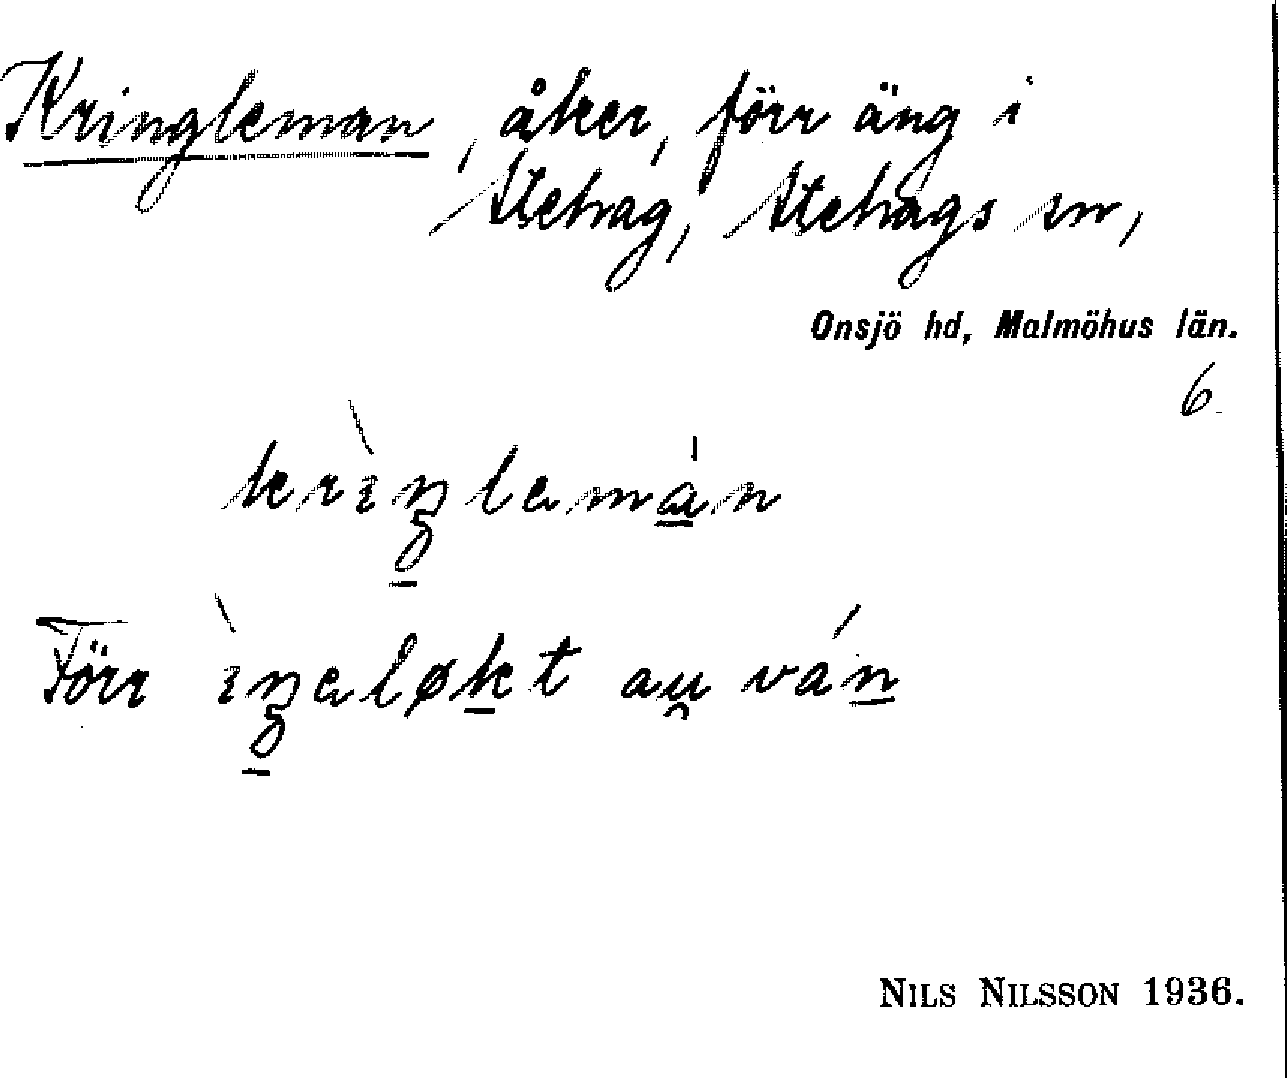 Kringleman, åker, förr äng i
Stehag, Stehags sn,
Onsjö hd, Malmöhus län.
6
krìŋlemán
Förr ìŋeløkt au̯ ván
NILS NILSSON 1936.